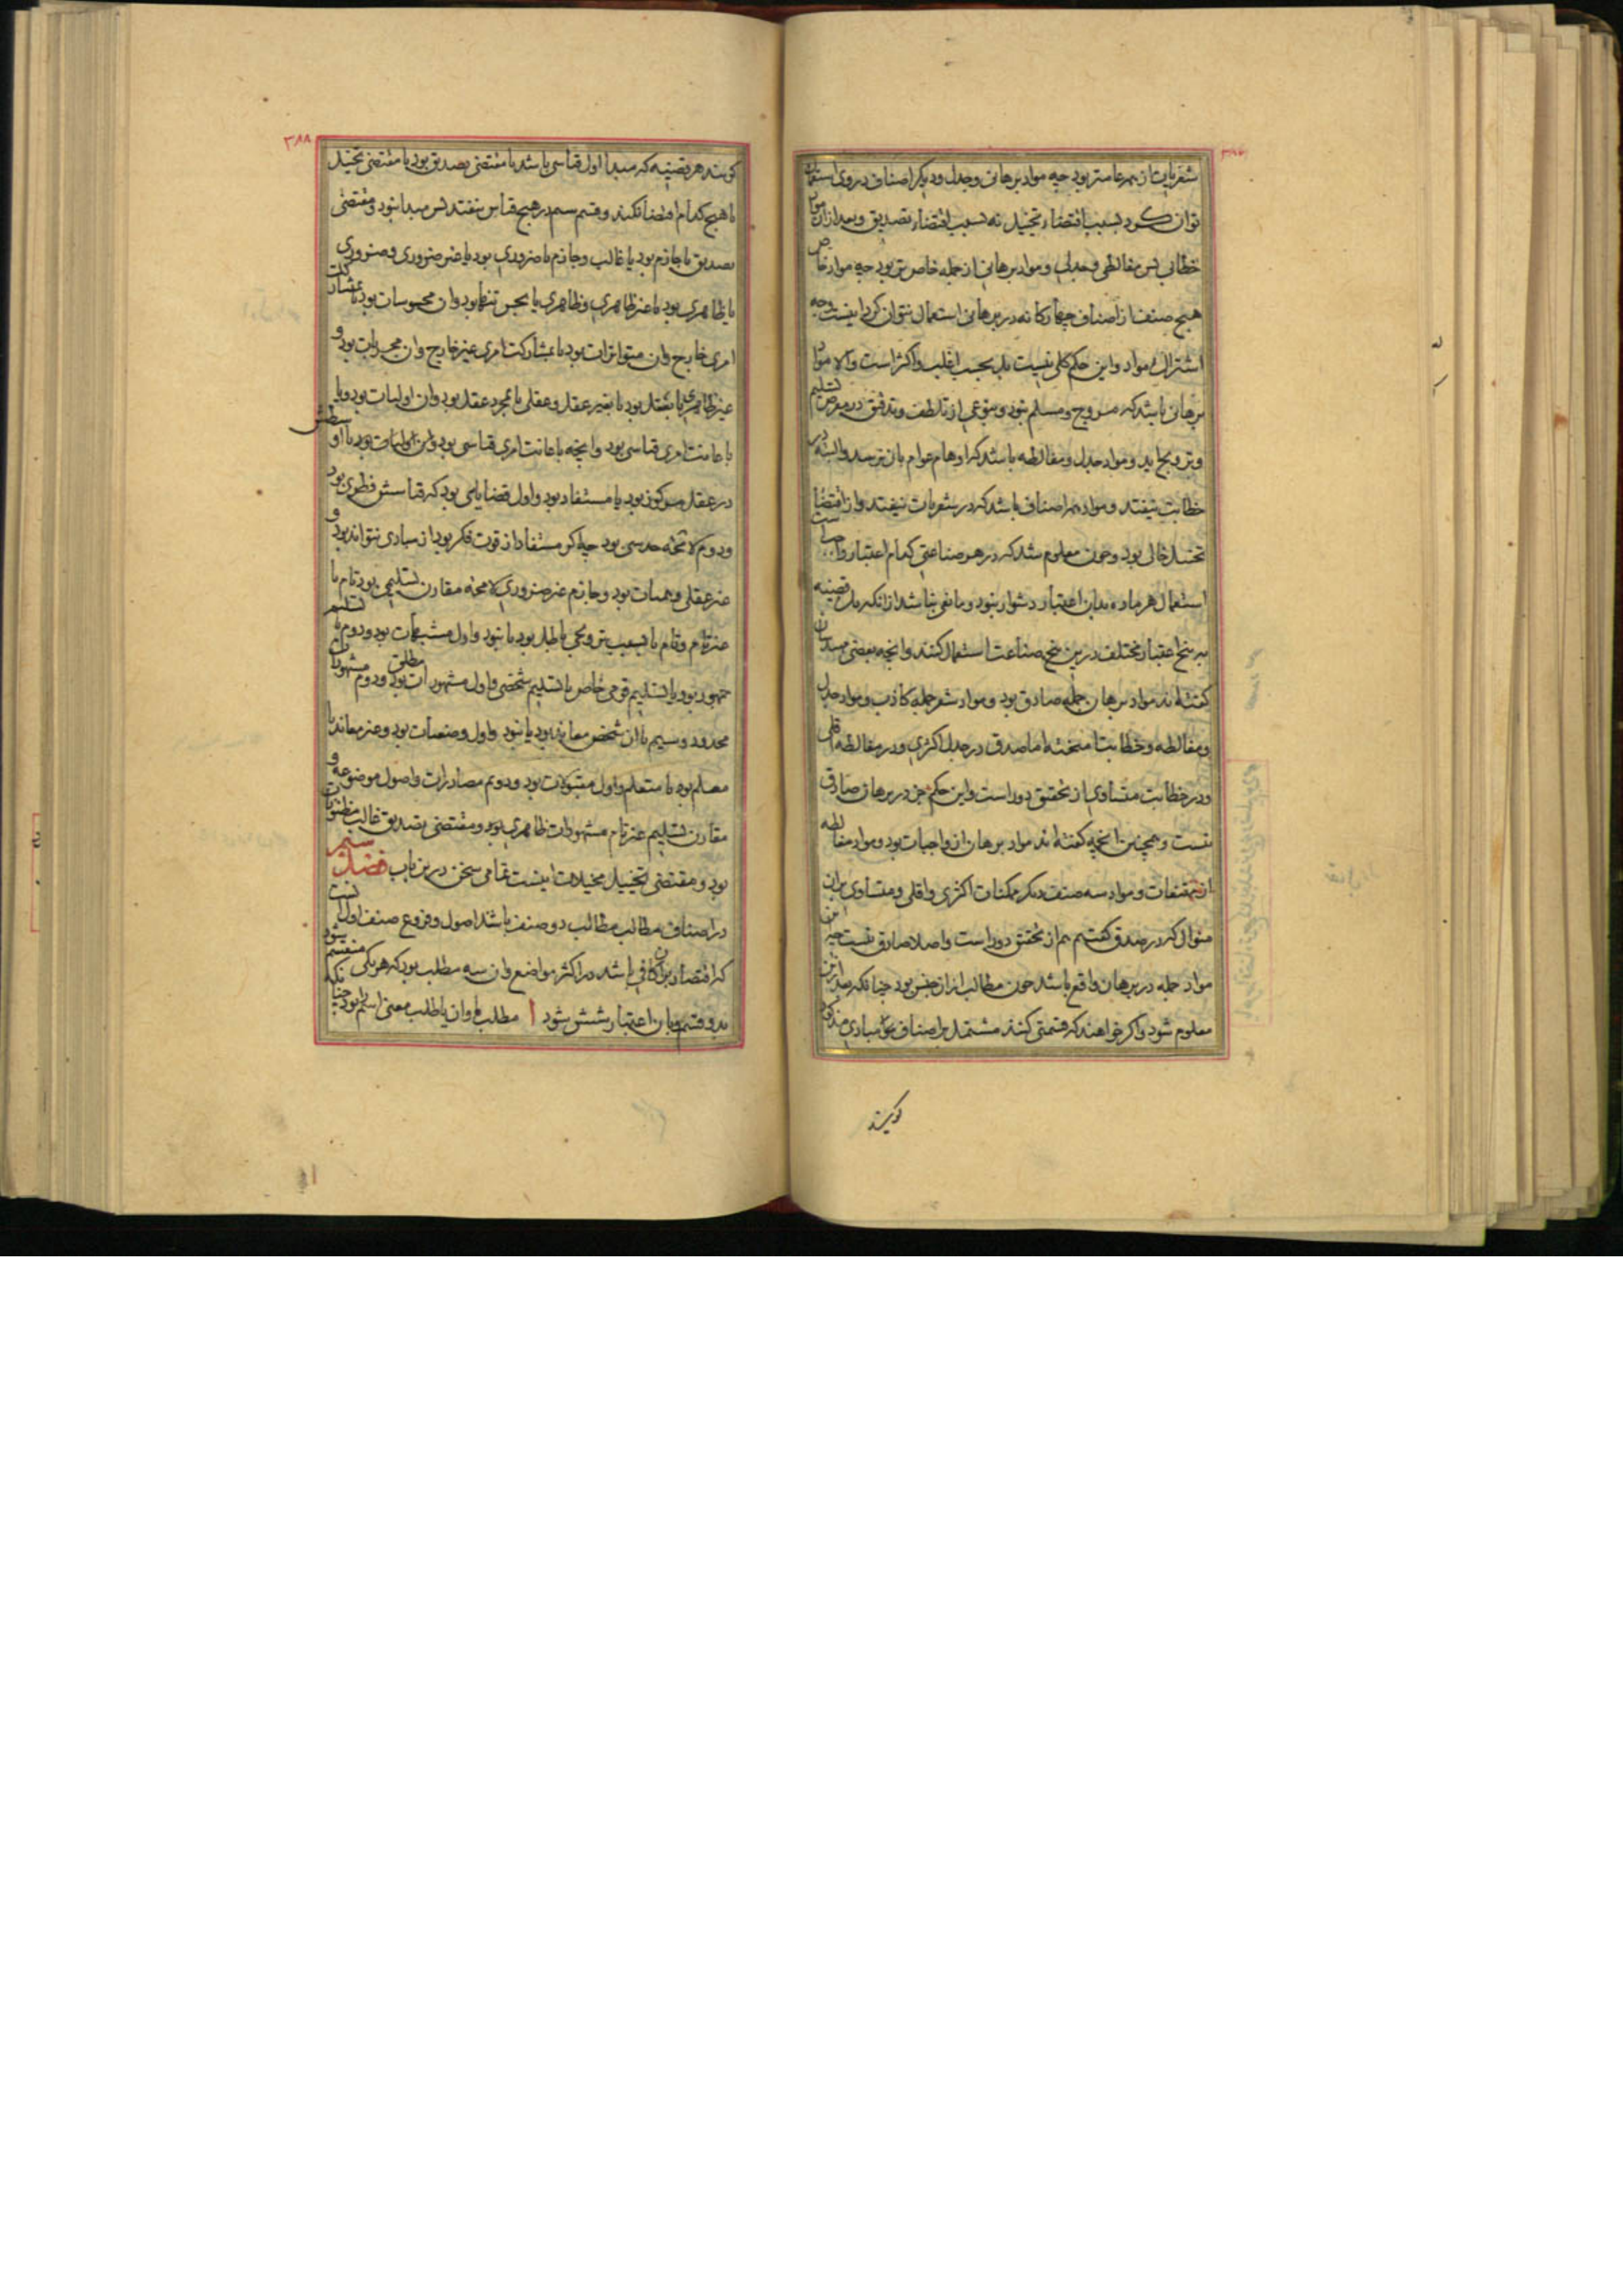 شعریات از همه عامتر بود چه مواد برهانی و جدل و دیگر اصناف در وی استعمال
توان کرد بسبب اقتضاء تخییل نه بسبب اقتضاء تصدیق و بعد ازان مواد
خطابی پس مغالطی و جدلی و مواد برهانی از جمله خاص تر بود چه مواد خاص
هیچ صنف از اصناف چهارکانه در برهانی استعمال نتوان کرد اینست وجه
اشتراک مواد و این حکم کلی نیست بل بحسب اغلب و اکثر است والا مواد
برهانی باشد که مروج و مسلم نبود و بنوعی از تلطف و تدقیق در معرض تسلیم
و ترویج اید و مواد جدل و مغالطه باشد که اوهام عوام بان نرسد و البته در
خطابت نیفتد و مواد همه اصناف باشد که در شعریات نیفتد و از اقتضا
تخییل خالی بود و چون معلوم شد که در هر صناعتی کدام اعتبار واجبست
استعمال هر ماده بدان اعتبار دشوار نبود و مانعی نباشد ازانکه یک قضیه
بر پنج اعتبار مختلف درین پنج صناعت استعمال کنند وانچه بعضی
گفته‌اند مواد برهان جمله صادق بود و مواد شعر جمله کاذب و مواد جدل
و مغالطه و خطابت امیخته اما صدق در جدل اکثری و در مغالطه اقلی
و در خطابت متساوی از تحقیق دور است و این حکم جز در برهان صادق
نیست و همچنین انچه گفته اند مواد برهان از واجبات بود و مواد مغالطه
از ممتنعات و مواد سه صنف دیگر ممکنات اکثری و اقلی و متساوی بران
منوال که در صدق گفتیم هم از تحقیق دور است و اصلا صادق نیست چه این
مواد جمله در برهان واقع باشد چون مطالب از ان جنس بود چنانکه بعد ازین
معلوم شود و اکر خواهند که قسمتی کنند مشتمل بر اصناف مبادی مذکور
کویند
۳۸۸
کویند هر قضیه که مبدا اول قیاسی باشد یا مقتضی تصدیق بود یا مقتضی تخییل
یا هیچ کدام اقتضا نکند و قسم سیم در هیچ قیاس نیفتد پس مبدا نبود و مقتضی
تصدیق یا جازم بود یا غالب و جازم یا ضروری بود یا غیر ضروری و ضروری
یا ظاهری بود یا غیر ظاهری و ظاهری یا بحس تنها بود و ان محسوسات بود یا بمشارکت
امری خارج و ان متواترات بود یا بمشارکت امری غیر خارج و ان مجربات بود و
غیر ظاهری یا بعقل بود یا بغیر عقل و عقلی یا بمجرد عقل بود و ان اولیات بود و یا
باعانت امری قیاسی بود وانچه باعانت امری قیاسی بود یا
در عقل مرکوز بود یا مستفاد بود و اول قضایایی بود که قیاسش فطری بود
و دوم لامحاله حدسی بود چه اکر مستفاد از قوت فکر بود از مبادی نتواند بود و
غیر عقلی وهمیات بود و جازم غیر ضروری لامحاله مقارن تسلیمی بود تام یا
غیر تام و تام یا بسبب ترویجی باطل بود یا نبود و اول مشبهات بود و دوم یا تسلیم
جمهور بود یا تسلیم قومی خاص یا تسلیم شخصی و اول مشهورات مطلق بود و دوم مشهورات
محدود و سیم یا ان شخص معاند بود یا نبود و اول وضعیات بود و غیر معاند یا
معلم بود یا متعلم و اول مقبولات بود و دوم مصادرات و اصول موضوعه و
مقارن تسلیم غیر تام مشهورات ظاهری بود و مقتضی تصدیق غالب مظنونات
بود و مقتضی تخییل مخیلات اینست تمامی سخن درین باب فصل سیم
در اصناف مطالب مطالب دو صنف باشد اصول و فروع صنف اول انست
که اقتصار بران کافی باشد در اکثر مواضع و ان سه مطلب بود که هر یکی منقسم شود
بدو قسم و بان اعتبار شش شود ا مطلب ما و ان یا طلب معنی اسم بود چنانکه